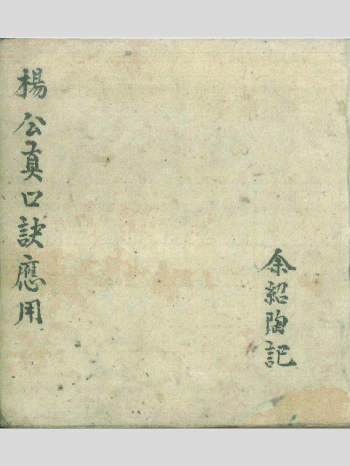 余紹陶記
楊公真口訣應用